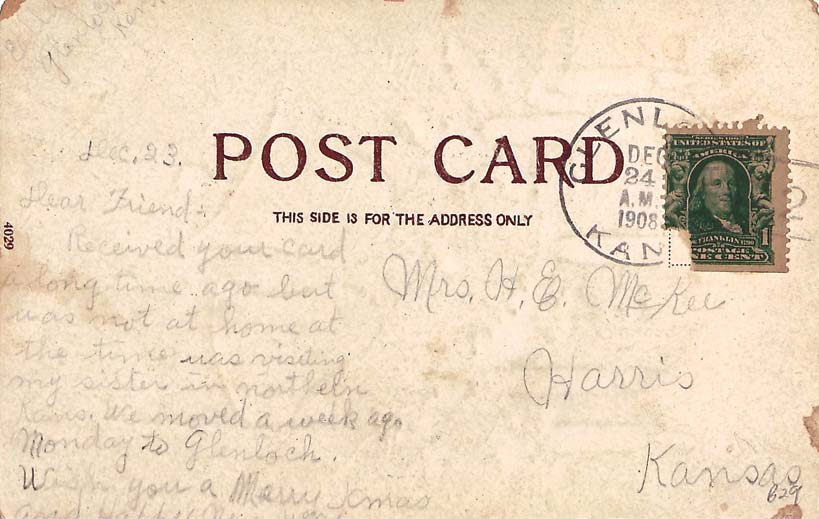 POST CARD
THIS SIDE IS FOR THE ADDRESS ONLY
4029
Dec. 23.
Dear Friend:
Received your card
a long time ago but
was not at home at
the time was visiting
my sister in northeln
Kans. We moved a week ago
Monday to Glenloch.
Wish you a Merry Xmas
and Happy New Year
GLENL
DEC
24
A.M.
1908
KAN
SERIES 1902
UNITED STATES OF
AMERICA
FRANKLIN 1790
POSTAGE
NE CENT
1
Mrs. H. E. McKee
Harris
Kansas
B29